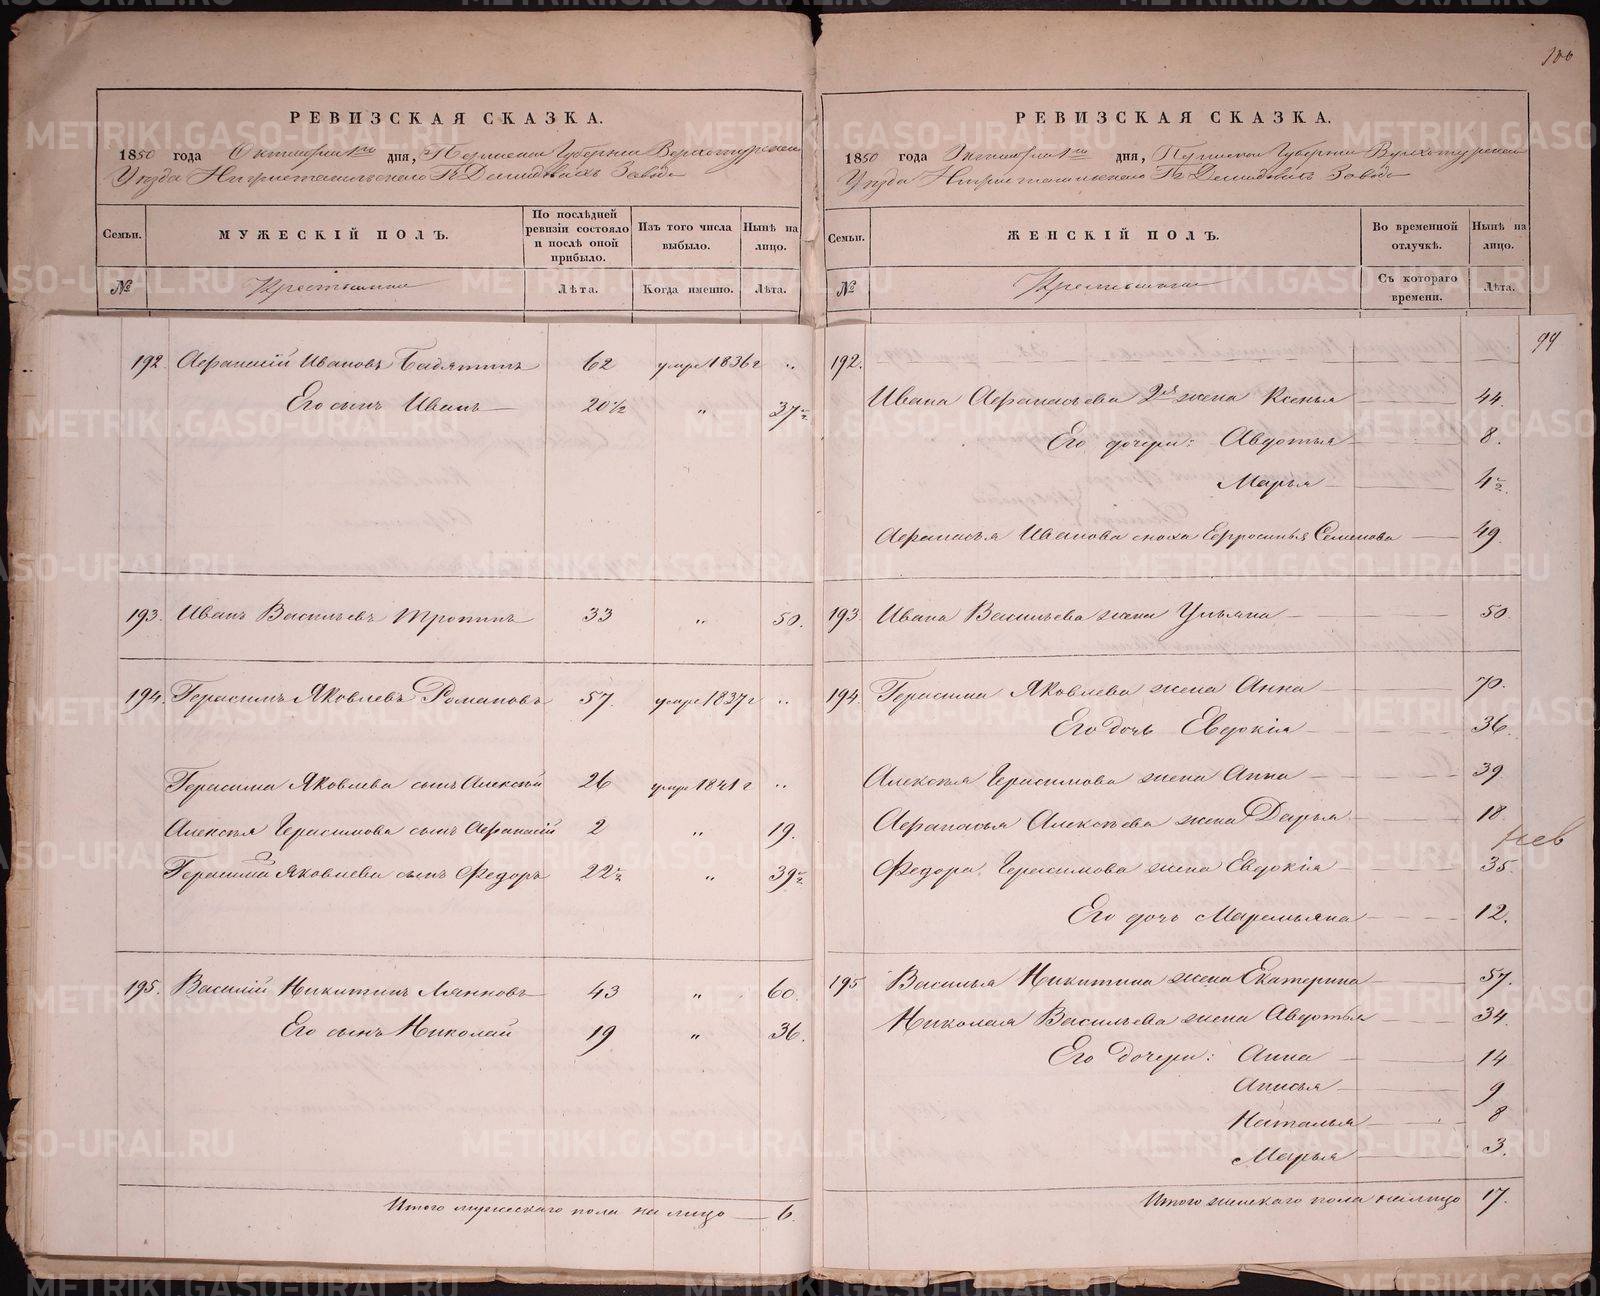 100
РЕВИЗСКАЯ СКАЗКА.
1850 года Октября 1го дня, Пермской Губернии Верхотурскаго
Уѣзда Нижнетагильскаго Гг Демидовыхъ Завода
Семьи. МУЖЕСКІЙ ПОЛЪ. По послѣдней ревизіи состояло и послѣ оной прибыло. Изъ того числа выбыло. Нынѣ на лицо.
№ Крестьяне Лѣта. Когда именно. Лѣта.
192. Афанасій Ивановъ 62 умре 1836 г "
Его сынъ Иванъ 20½ " 37½
193. Иванъ Васильевъ Тропинъ 33 " 50.
194. Герасимъ Яковлевъ Романовъ 57. умре 1837 г "
Герасима Яковлева сынъ Алексѣй 26 умре 1841 г "
Алексѣя Герасимова сынъ Афанасій 2 " 19.
Герасима Яковлева сынъ Федоръ 22½ " 39½
195. Василій Никитинъ 43 " 60.
Его сынъ Николай 19 " 36.
Итого мужескаго пола на лицо 6.
РЕВИЗСКАЯ СКАЗКА.
1850 года Октября 1го дня, Пермской Губернии Верхотурскаго
Уѣзда Нижнетагильскаго Гг Демидовыхъ Завода
Семьи. ЖЕНСКІЙ ПОЛЪ. Во временной отлучкѣ. Нынѣ на лицо.
№ Крестьяне Съ котораго времени. Лѣта.
99
192. Ивана Афанасьева 2я жена Ксенья 44.
Его дочери: Авдотья 8.
Марья 4½.
Афанасья Иванова сноха Ефросинья Семенова 49.
193. Ивана Васильева жена Ульяна 50.
194. Герасима Яковлева жена Анна 70.
Его дочь Евдокія 36.
Алексѣя Герасимова жена Анна 39.
Афанасья Алексѣева жена Дарья 18.
Федора Герасимова жена Евдокія 35.
Его дочь Маремьяна 12.
195 Василья Никитина жена Екатерина 57.
Николая Васильева жена Авдотья 34.
Его дочери: Анна 14
Анисья 9
Наталья 8
Марья 3.
Итого женскаго пола на лицо 17.
METRIKI.GASO-URAL.RU